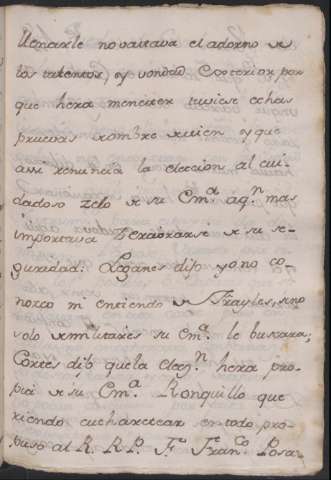 llenarle no vastava el adorno de
los talentos, y vondad Exterior, por
que hera menester tuviese echas
pruevas hombre de vien y que
asi renuncia la eleccion al cui-
dadoso zelo de su Em.ª a q.n mas
importava de su se-
guridad. Leganes dijo yo no co-
nozco ni entiendo de Frayles, sino
solo de militares su Em.ª le buscara;
Cortes dijo que la elecc.n hera pro-
pia de su Em.ª Ronquillo que-
riendo cucharetear en todo pro-
puso al R. P. F. Fran.co Posa-